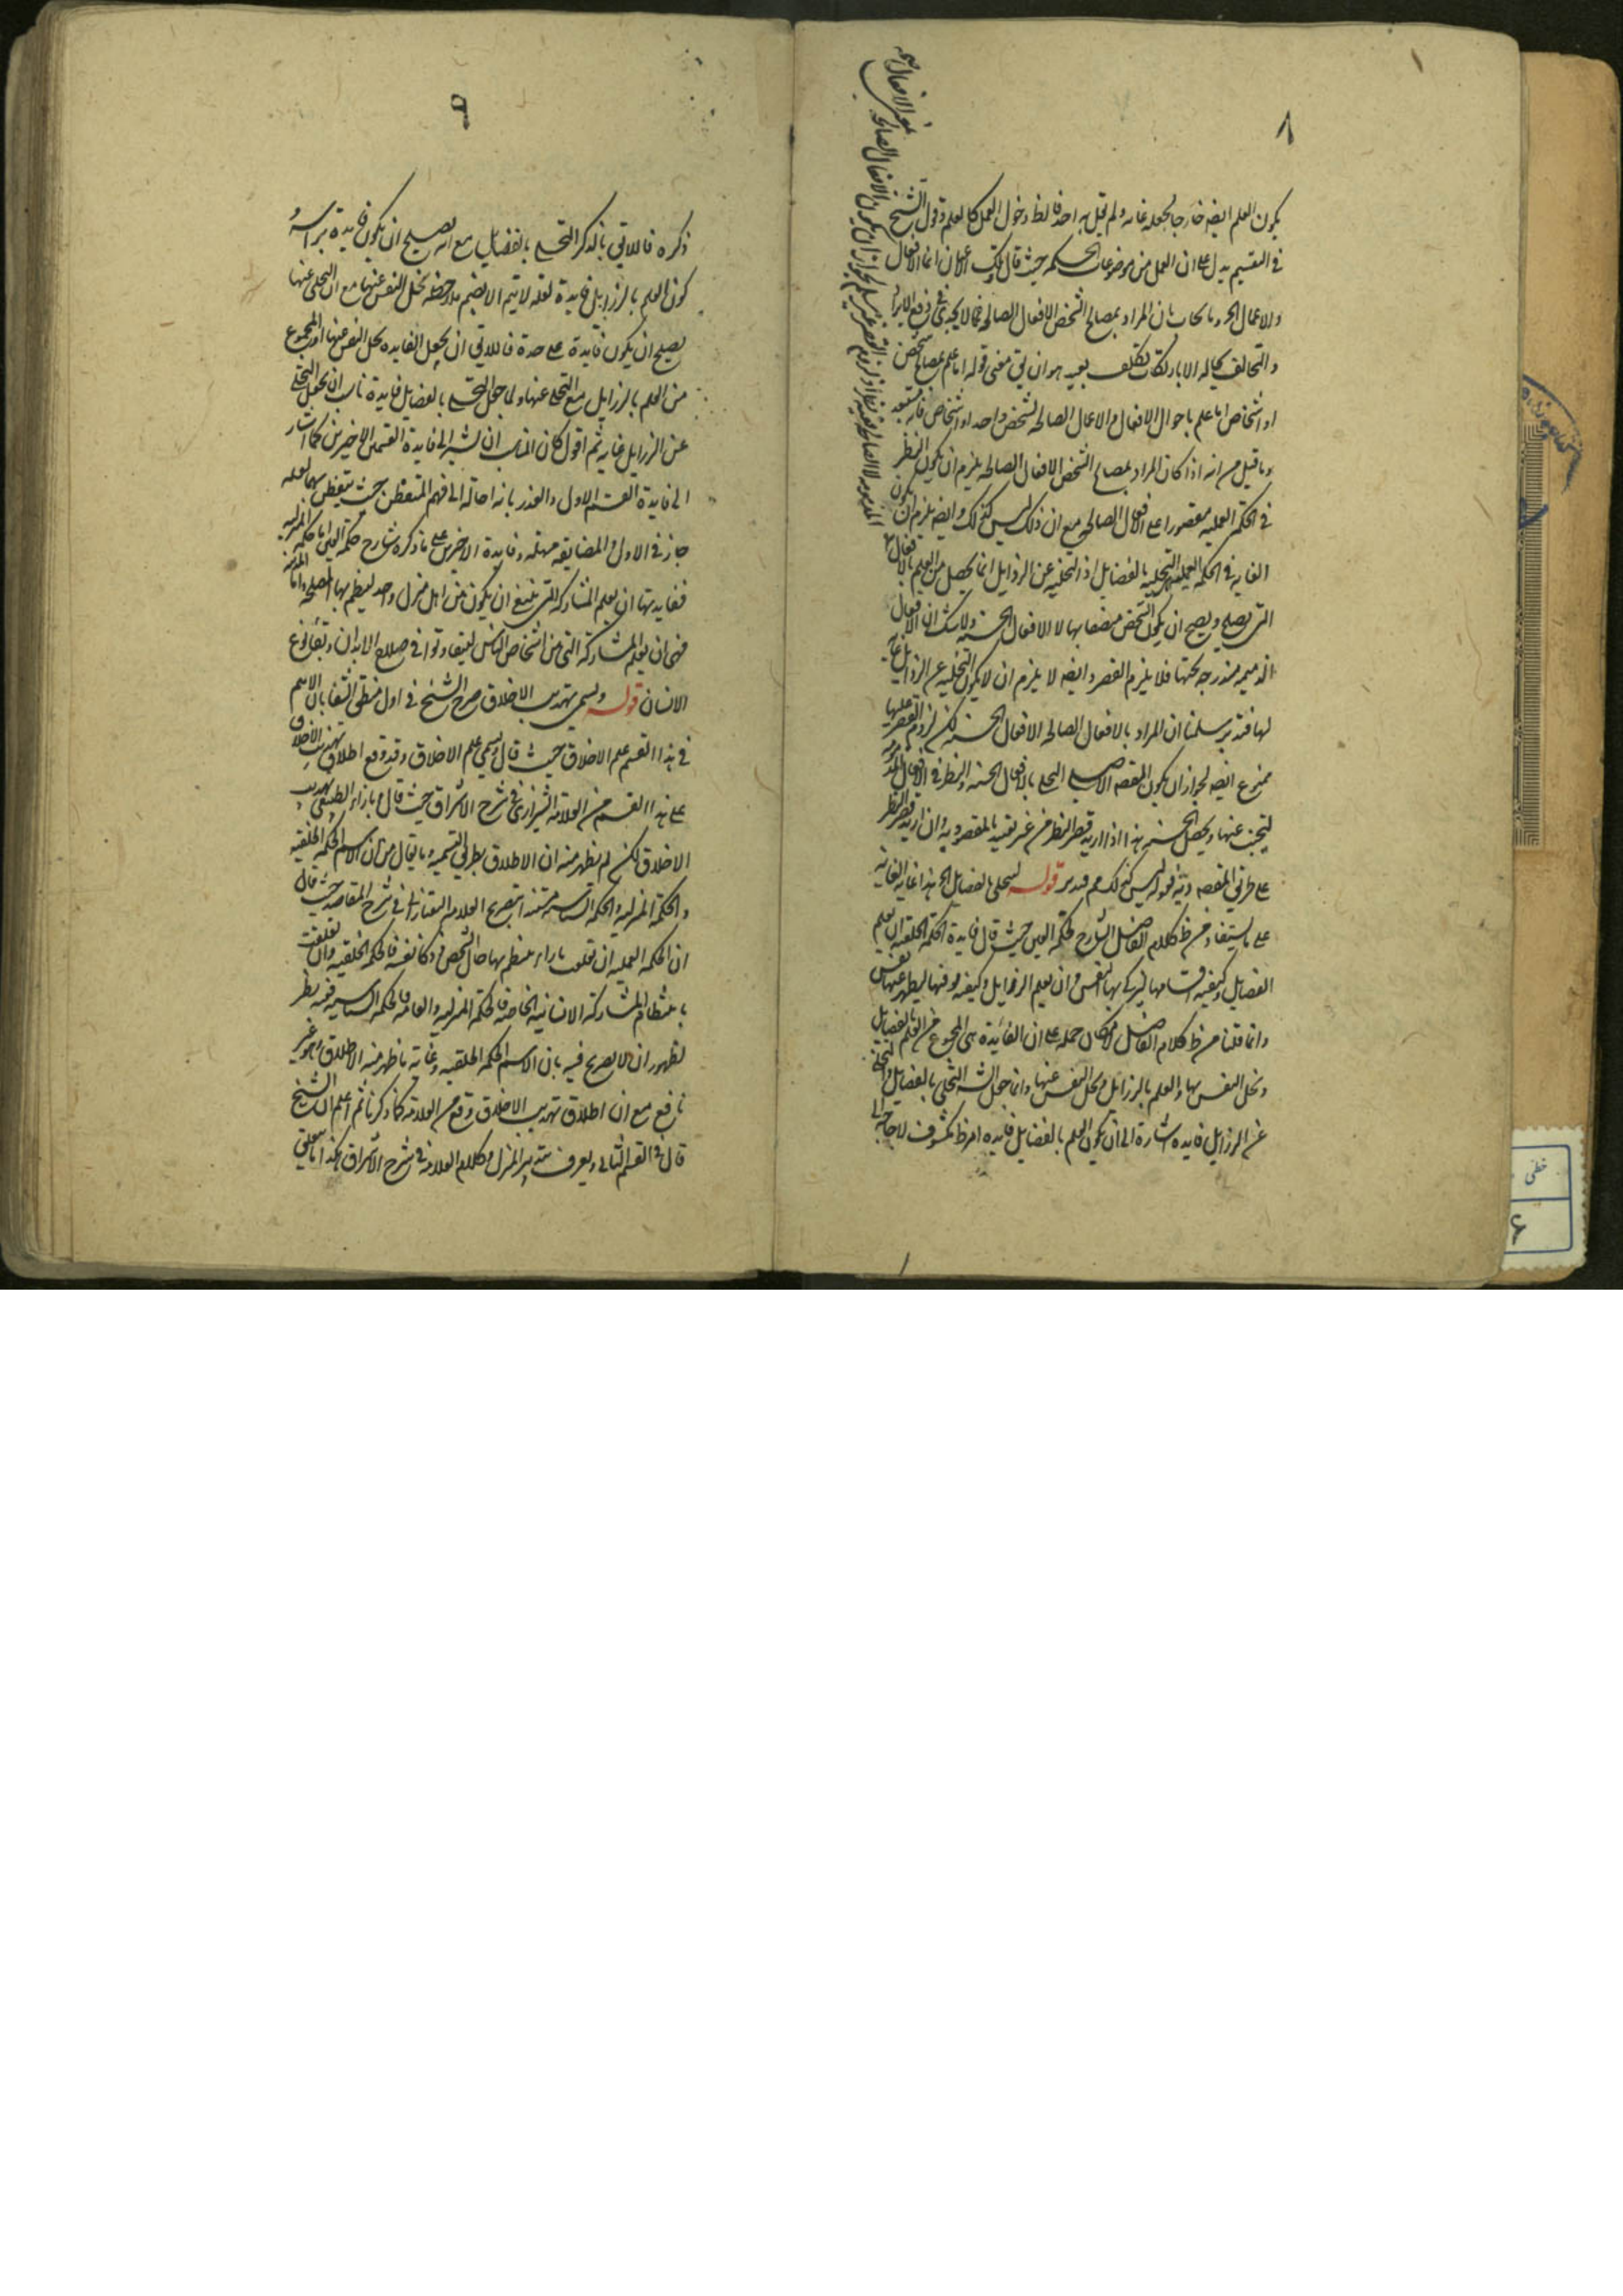 ٨
يكون العلم ايضه خارجا لجعله غايه ولم يقل به احد فالظ دخول العمل كالعلم وقول الشيخ
في التقسيم يدل على ان العمل من موضوعات الحكمه حيث قال تلك الاعيان اما الافعال
والاعمال الخ وما يجاب بان المراد بمصالح الشخص الافعال الصالحه فمما لا يجدى في دفع الايراد
والتخالف بحاله الا بارتكاب تكلف بعيد هو ان يق معنى قوله اما علم بمصالح شخص
او اشخاص اما علم باحوال الافعال والاعمال الصالحه لشخص واحد او اشخاص
وما قيل من انه اذا كان المراد بمصالح الشخص الافعال الصالحه يلزم ان يكون النظر
في الحكمه العمليه مقصورا على الافعال الصالحه مع ان ذلك ليس كذلك وايضه يلزم ان لا يكون
الغايه في الحكمه العمليه التحليه بالفضايل اذ التخليه عن الرذايل انما يحصل من العلم بالافعال
التى يصلح ويصح ان يكون الشخص متصفا بها لا الافعال الحسنه ولا شك ان الافعال
الذميمه مندرجه تحتها فلا يلزم القصر وايضه لا يلزم ان لا يكون التخليه عن الرذايل غايه
لها فتدبر سلمنا ان المراد بالافعال الصالحه الافعال الحسنه لكن لزوم القصر عليها
ممنوع ايضه لجواز ان يكون المقصد الاصلى التحلى بالافعال الحسنه والنظر في الافعال المذمومه
ليتجنب عنها ويحصل الحسنه هذا اذا اريد قصر النظر من غير تقييد بالمقصوديه وان اريد قصر النظر
على طريق المقصد فقوله ليس كذلك مم فتدبر قوله لتحلى بالفضايل الخ هذا غايه الغايه
على ما يستفاد من ظ كلام الفاضل الشارح لحكمه العين حيث قال فايدة الحكمه الخلقيه ان يعلم
الفضايل وكيفيه اقتنائها ليزكى بها النفس وان يعلم الرذايل وكيفيه توقيها ليطهر عنها النفس
وانما قلنا من ظ كلام الفاضل لامكان حمله على ان الفائدة هي المجموع من العلم بالفضايل
وتحلى النفس بها والعلم بالرذايل وتخلى النفس عنها وانما جعل الشه التحلى بالفضايل والتخلى
عن الرذايل فايده اشارة الى ان كون العلم بالفضايل فايده امر ظ مكشوف لا حاجة الى
ذكره فاللايق بالذكر التحلى بالفضايل مع انه يصلح ان يكون فايدة براسه و
كون العلم بالرذايل فايدة لعله لا يتم الا بضم ملاحظه تخلى النفس عنها مع ان التخلى عنها
يصلح ان يكون فايدة على حدة فاللايق ان يجعل الفايده تخلى النفس عنها او المجموع
من العلم بالرذايل مع التخلى عنها ولما جعل التحلى بالفضايل فايدة ناسب ان يجعل التخلى
عن الرذايل غايه ثم اقول كان المناسب ان يشير الى فايدة القسمين الاخيرين كما اشار
الى فايدة القسم الاول والعذر بانه احاله الى فهم المتفطن بحيث يتفطن بهما لعله
جاز في الاول والمضايقه مهمله وفايدة الاخيرين على ما ذكره شارح حكمه العين اما حكمه المنزليه
ففايدتها ان يعلم المشاركه التى ينبغى ان يكون بين اهل منزل واحد لينتظم بها المصلحه واما المدنيه
فهى ان يعلم المشاركه التى بين اشخاص الناس ليتعاونوا في مصالح الابدان وبقاء نوع
الانسان قوله ويسمى تهذيب الاخلاق صرح الشيخ في اول منطق الشفا بان الاسم
في هذا القسم علم الاخلاق حيث قال ويسمى علم الاخلاق وقد وقع اطلاق تهذيب الاخلاق
على هذا القسم من العلامه الشيرازى في شرح الاشراق حيث قال بازاء الطبيعى تهذيب
الاخلاق لكن لم يظهر منه ان الاطلاق بطريق التسميه وما يقال من ان الاسم الحكمه الخلقيه
والحكمه المنزليه والحكمه السياسيه مستندا بتصريح العلامه التفتازانى في شرح المقاصد حيث قال
ان الحكمه العمليه ان تعلقت باراء ينتظم بها حال الشخص وزكاء نفسه فالحكمه الخلقيه وان تعلقت
بانتظام المشاركه الانسانيه الخاصه فالحكمه المنزليه والعامه فالحكمه السياسيه ففيه نظر
لظهور ان لا تصريح فيه بان الاسم الحكمه الخلقيه وغايه ما ظهر منه الاطلاق وهو غير
نافع مع ان اطلاق تهذيب الاخلاق وقع من العلامه كما ذكرنا ثم اعلم ان الشيخ
قال في القسم الثانى ويعرف بتدبير المنزل وكلام العلامه في شرح الاشراق هكذا ما يتعلق